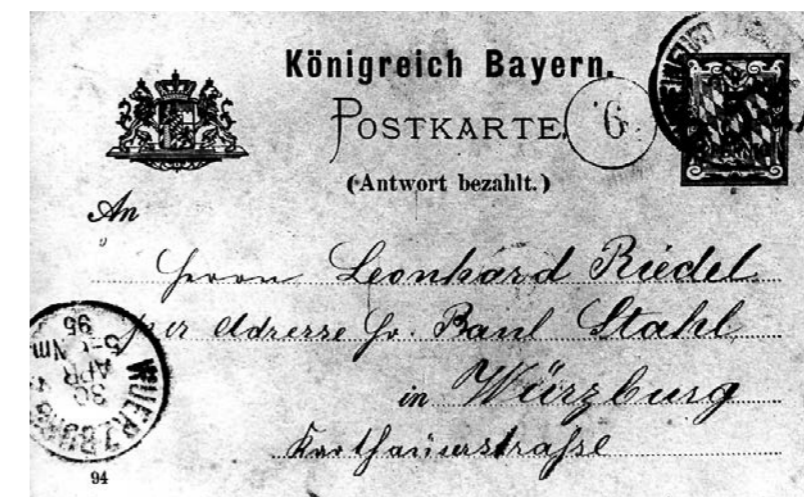 Königreich Bayern.
POSTKARTE
6
(Antwort bezahlt.)
An
Herrn Leonhard Riedel
per Adresse Hr. Paul Stahl
in Würzburg
Karthäuserstraße
WUERZBURG
30
APR
5-6 Nm.
95
94